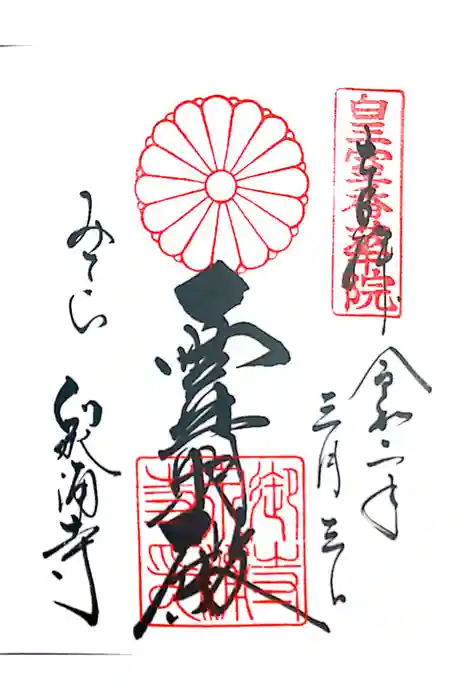 皇室香華院
奉拝
令和二年
三月三日
霊明殿
みてら
泉涌寺